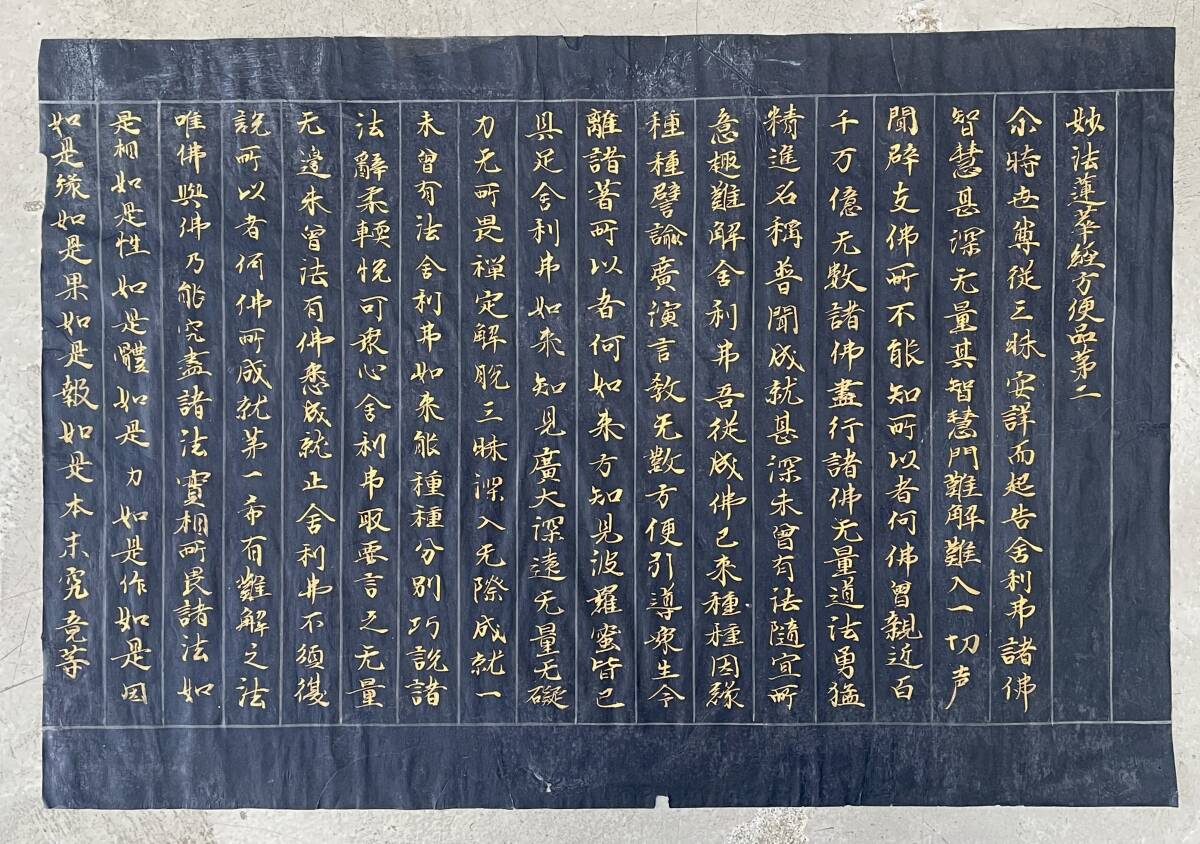 妙法蓮華經方便品第二
尒時世尊從三昧安詳而起告舍利弗諸佛
智慧甚深无量其智慧門難解難入一切声
聞辟支佛所不能知所以者何佛曾親近百
千万億无數諸佛盡行諸佛无量道法勇猛
精進名稱普聞成就甚深未曾有法隨宜所
意趣難解舍利弗吾従成佛已来種種因縁
種種譬諭廣演言教无數方便引導衆生令
離諸著所以者何如来方知見波羅蜜皆已
具足舍利弗如来知見廣大深遠无量无礙
力无所畏禅定解脫三昧深入无際成就一
未曾有法舍利弗如来能種種分別巧説諸
法辭柔輭悅可衆心舍利弗取要言之无量
无邊未曾法有佛悉成就止舍利弗不須復
說所以者何佛所成就第一希有難解之法
唯佛與佛乃能究盡諸法實相所畏諸法如
是相如是性如是體如是力如是作如是因
如是縁如是果如是報如是本末究竟等